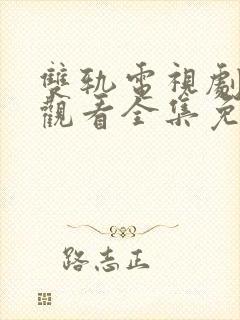 雙軌電視劇
觀看全集免
路志正